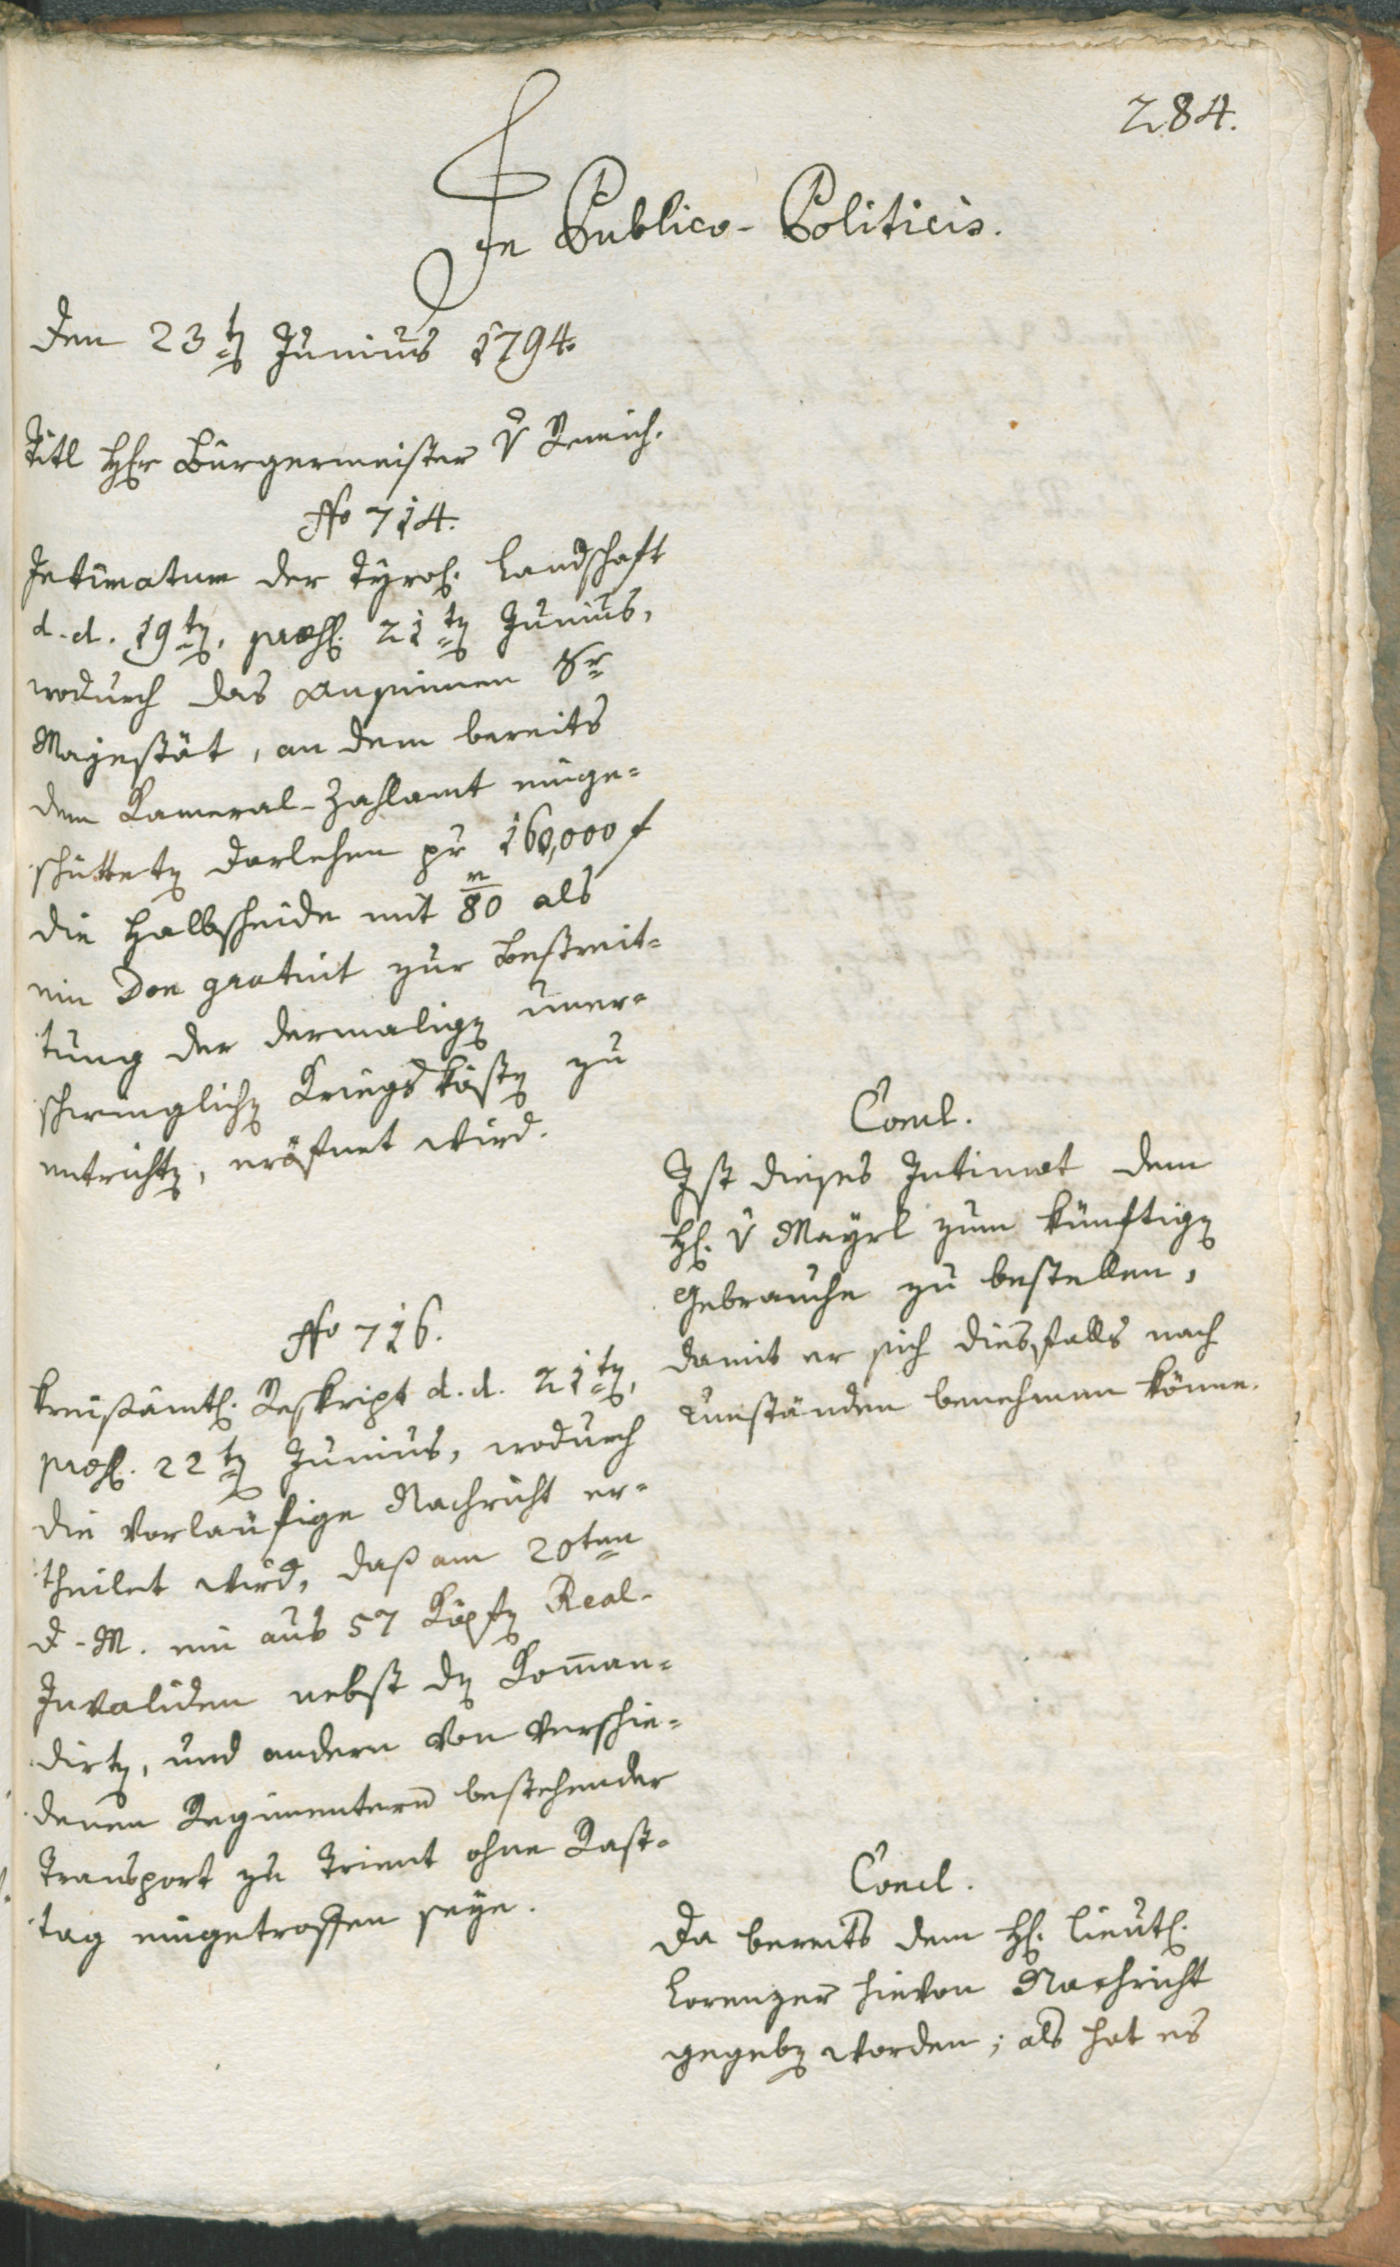 284.
In Publico-Politicis.
Den 23ten Junius 1794.
Titl Herr Bürgermeister v Remich.
No 714.
Intimatum der Tyrol. Landschaft
d. d. 19ten, præs. 21ten Junius,
wodurch das Ansinnen Sr
Majestät, an dem bereits
dem Kameral-Zahlamt einge=
schütteten Darlehen pr 160,000 f
die Halbscheide mit 80m als
ein Don gratuit zur Bestreit=
tung der dermaligen uner=
schwinglichen Kriegskösten zu
entrichten, eröfnet wird.
Concl.
Ist dieses Intimat dem
H. v Mayrl zum künftigen
Gebrauche zu bestellen,
damit er sich diesfalls nach
Umständen benehmen könne.
No 716.
Kreisämtl. Reskript d. d. 21ten,
præs. 22ten Junius, wodurch
die vorläufige Nachricht er=
theilet wird, daß am 20ten
d. M. ein aus 57 Köpfen Real-
Invaliden nebst den Kom̅an=
dirten, und andern von verschie=
denen Regimentern bestehender
Transport zu Trient ohne Rast=
tag eingetroffen seye.
Concl.
Da bereits dem H. Lieut.
Lorenzer hievon Nachricht
gegeben worden; als hat es